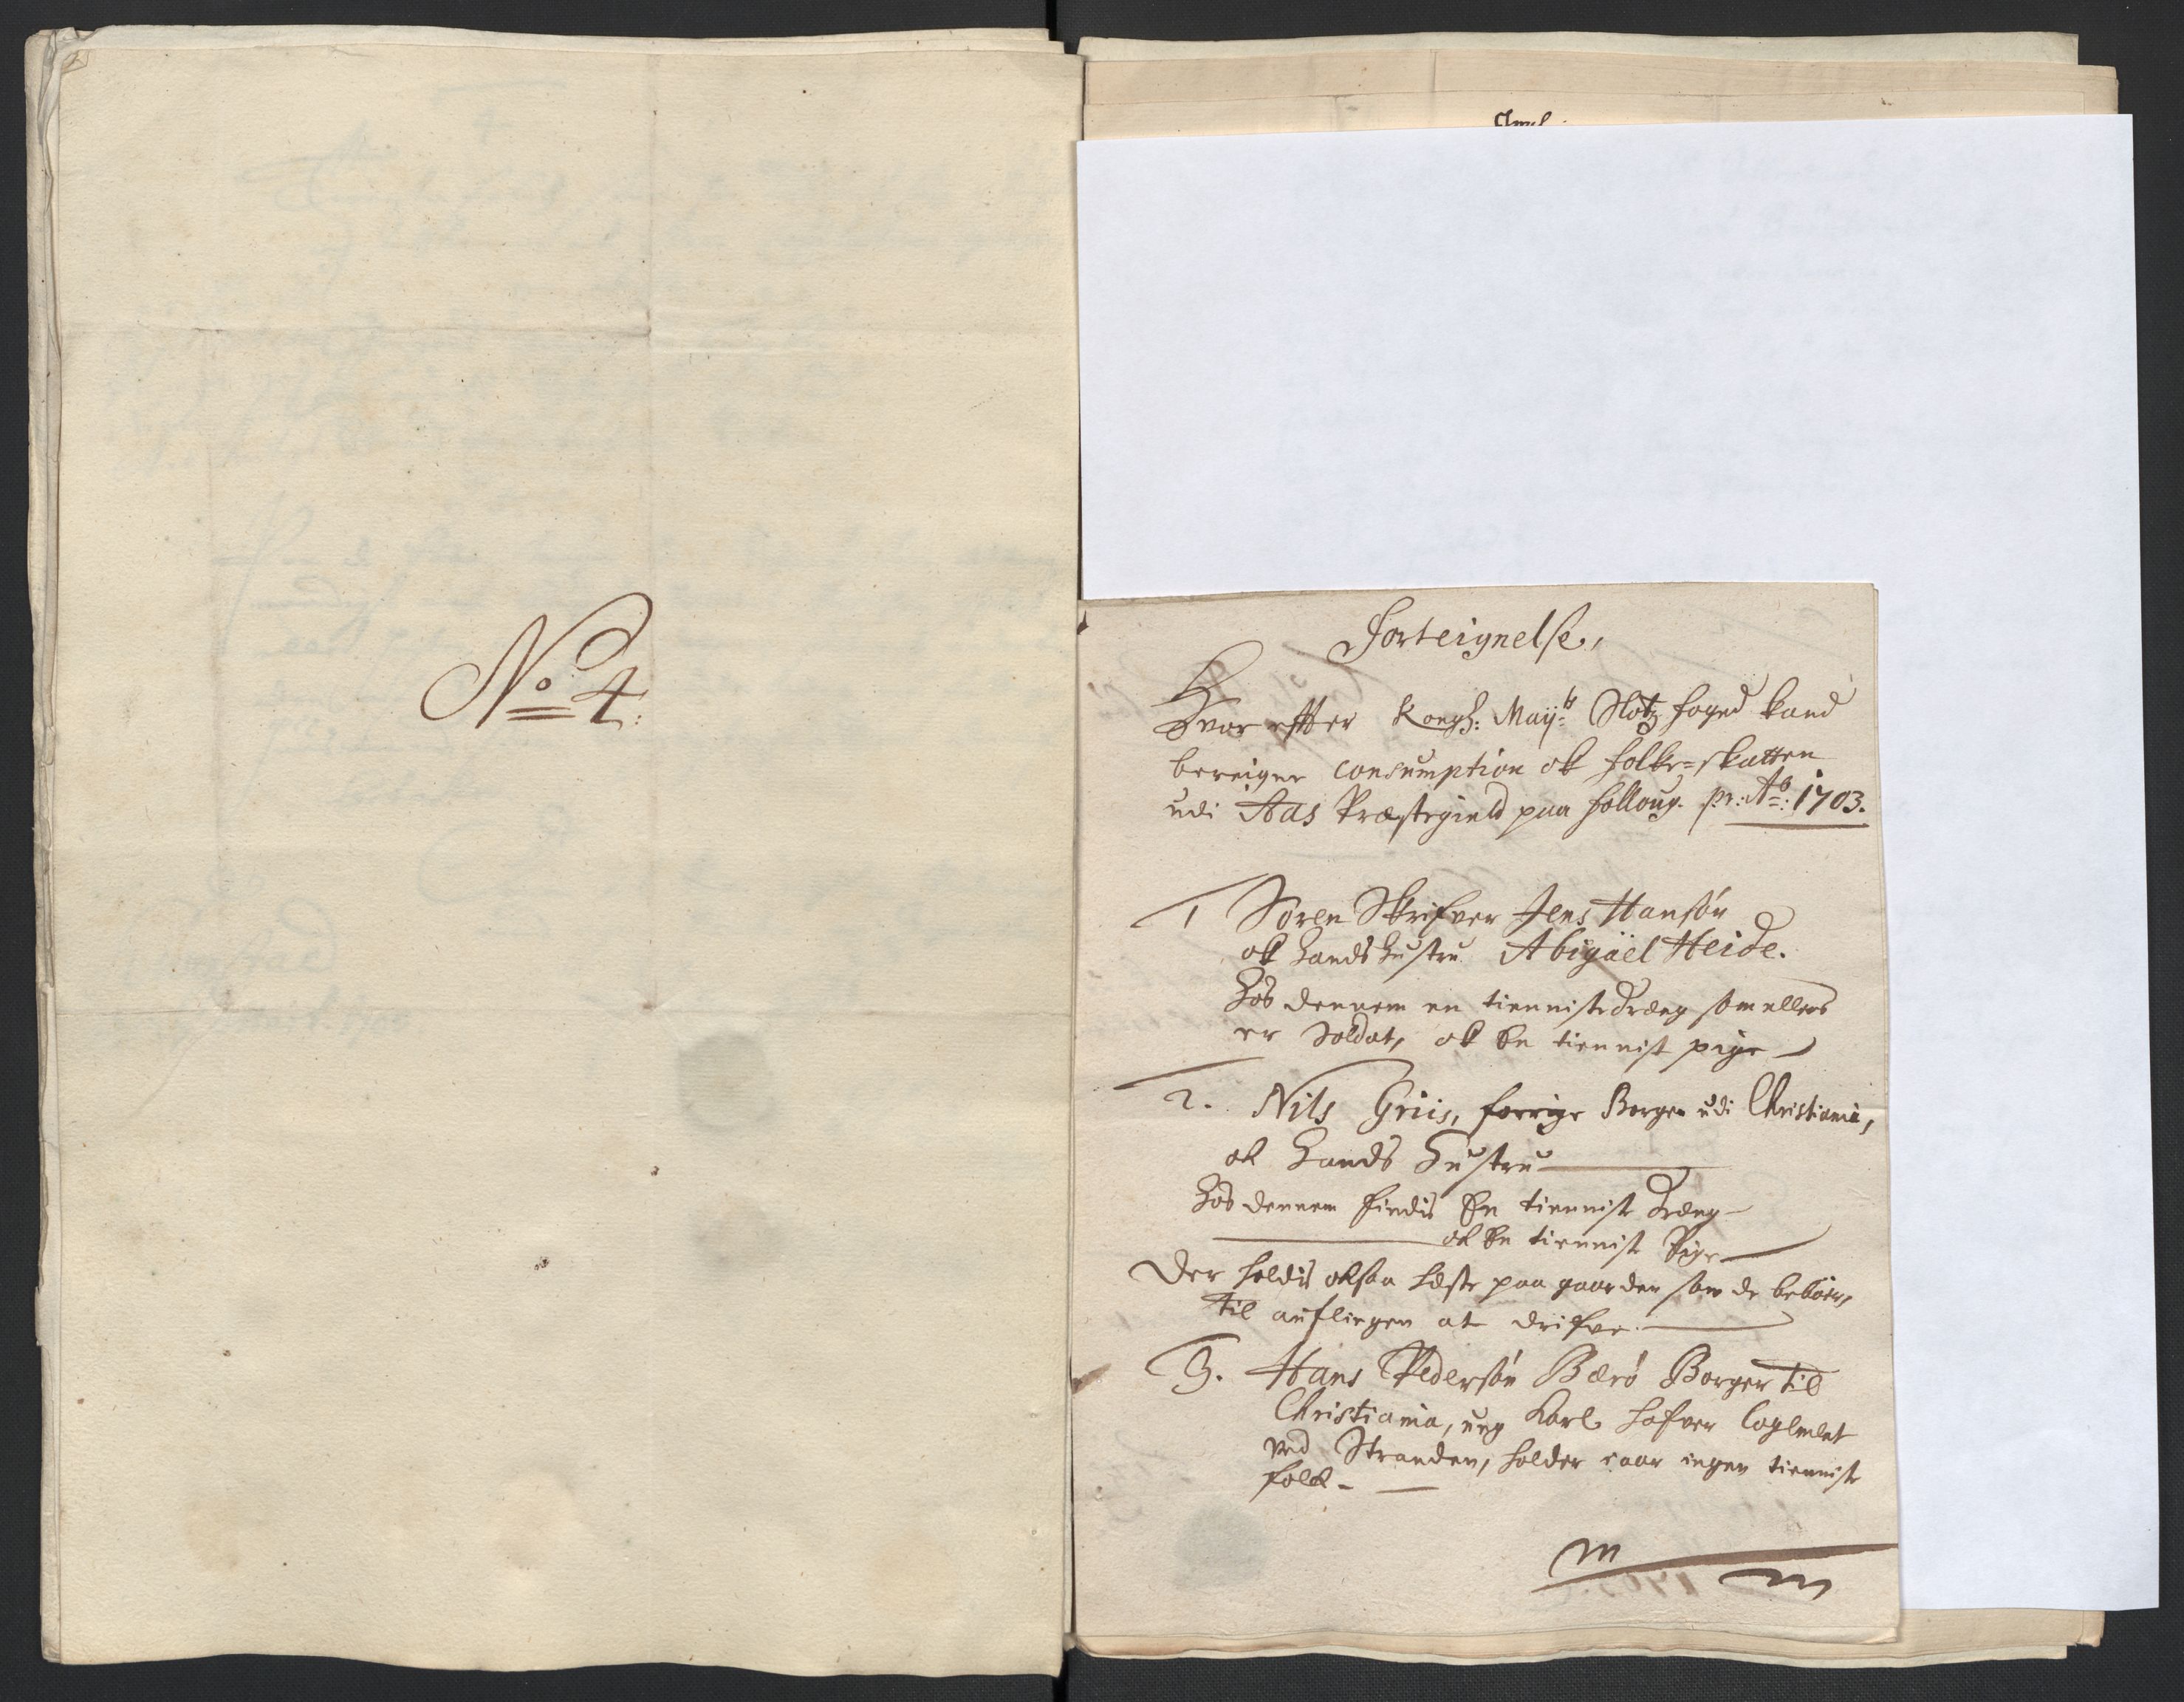 No 4:
Forteignelse,
Hvor effter Kongl: Mayts Slotz foged kand
bereigne Consumption ok folke=skatten
udi Aas Præstegield paa folloug. pr: Ao: 1703.
1 Soren Skrifver Jens Hansøn
ok hands hustru Abigael Heide.
hos dennem en tienniste dreng som ellers
er Soldat, ok En tiennist pige
2. Nils Griis, forrige Borger udi Christiania,
ok hands hustru
hos dennem findis En tienniste dreng
ok En tienniste Pige
Der holdis oksaa heste paa gaarden som de beboer,
til auflingen at drifve.
3. Hans Pedersøn Bærø Borger til
Christiania, ung karl hafver
ved Stranden, holder ingen tienniste
folk